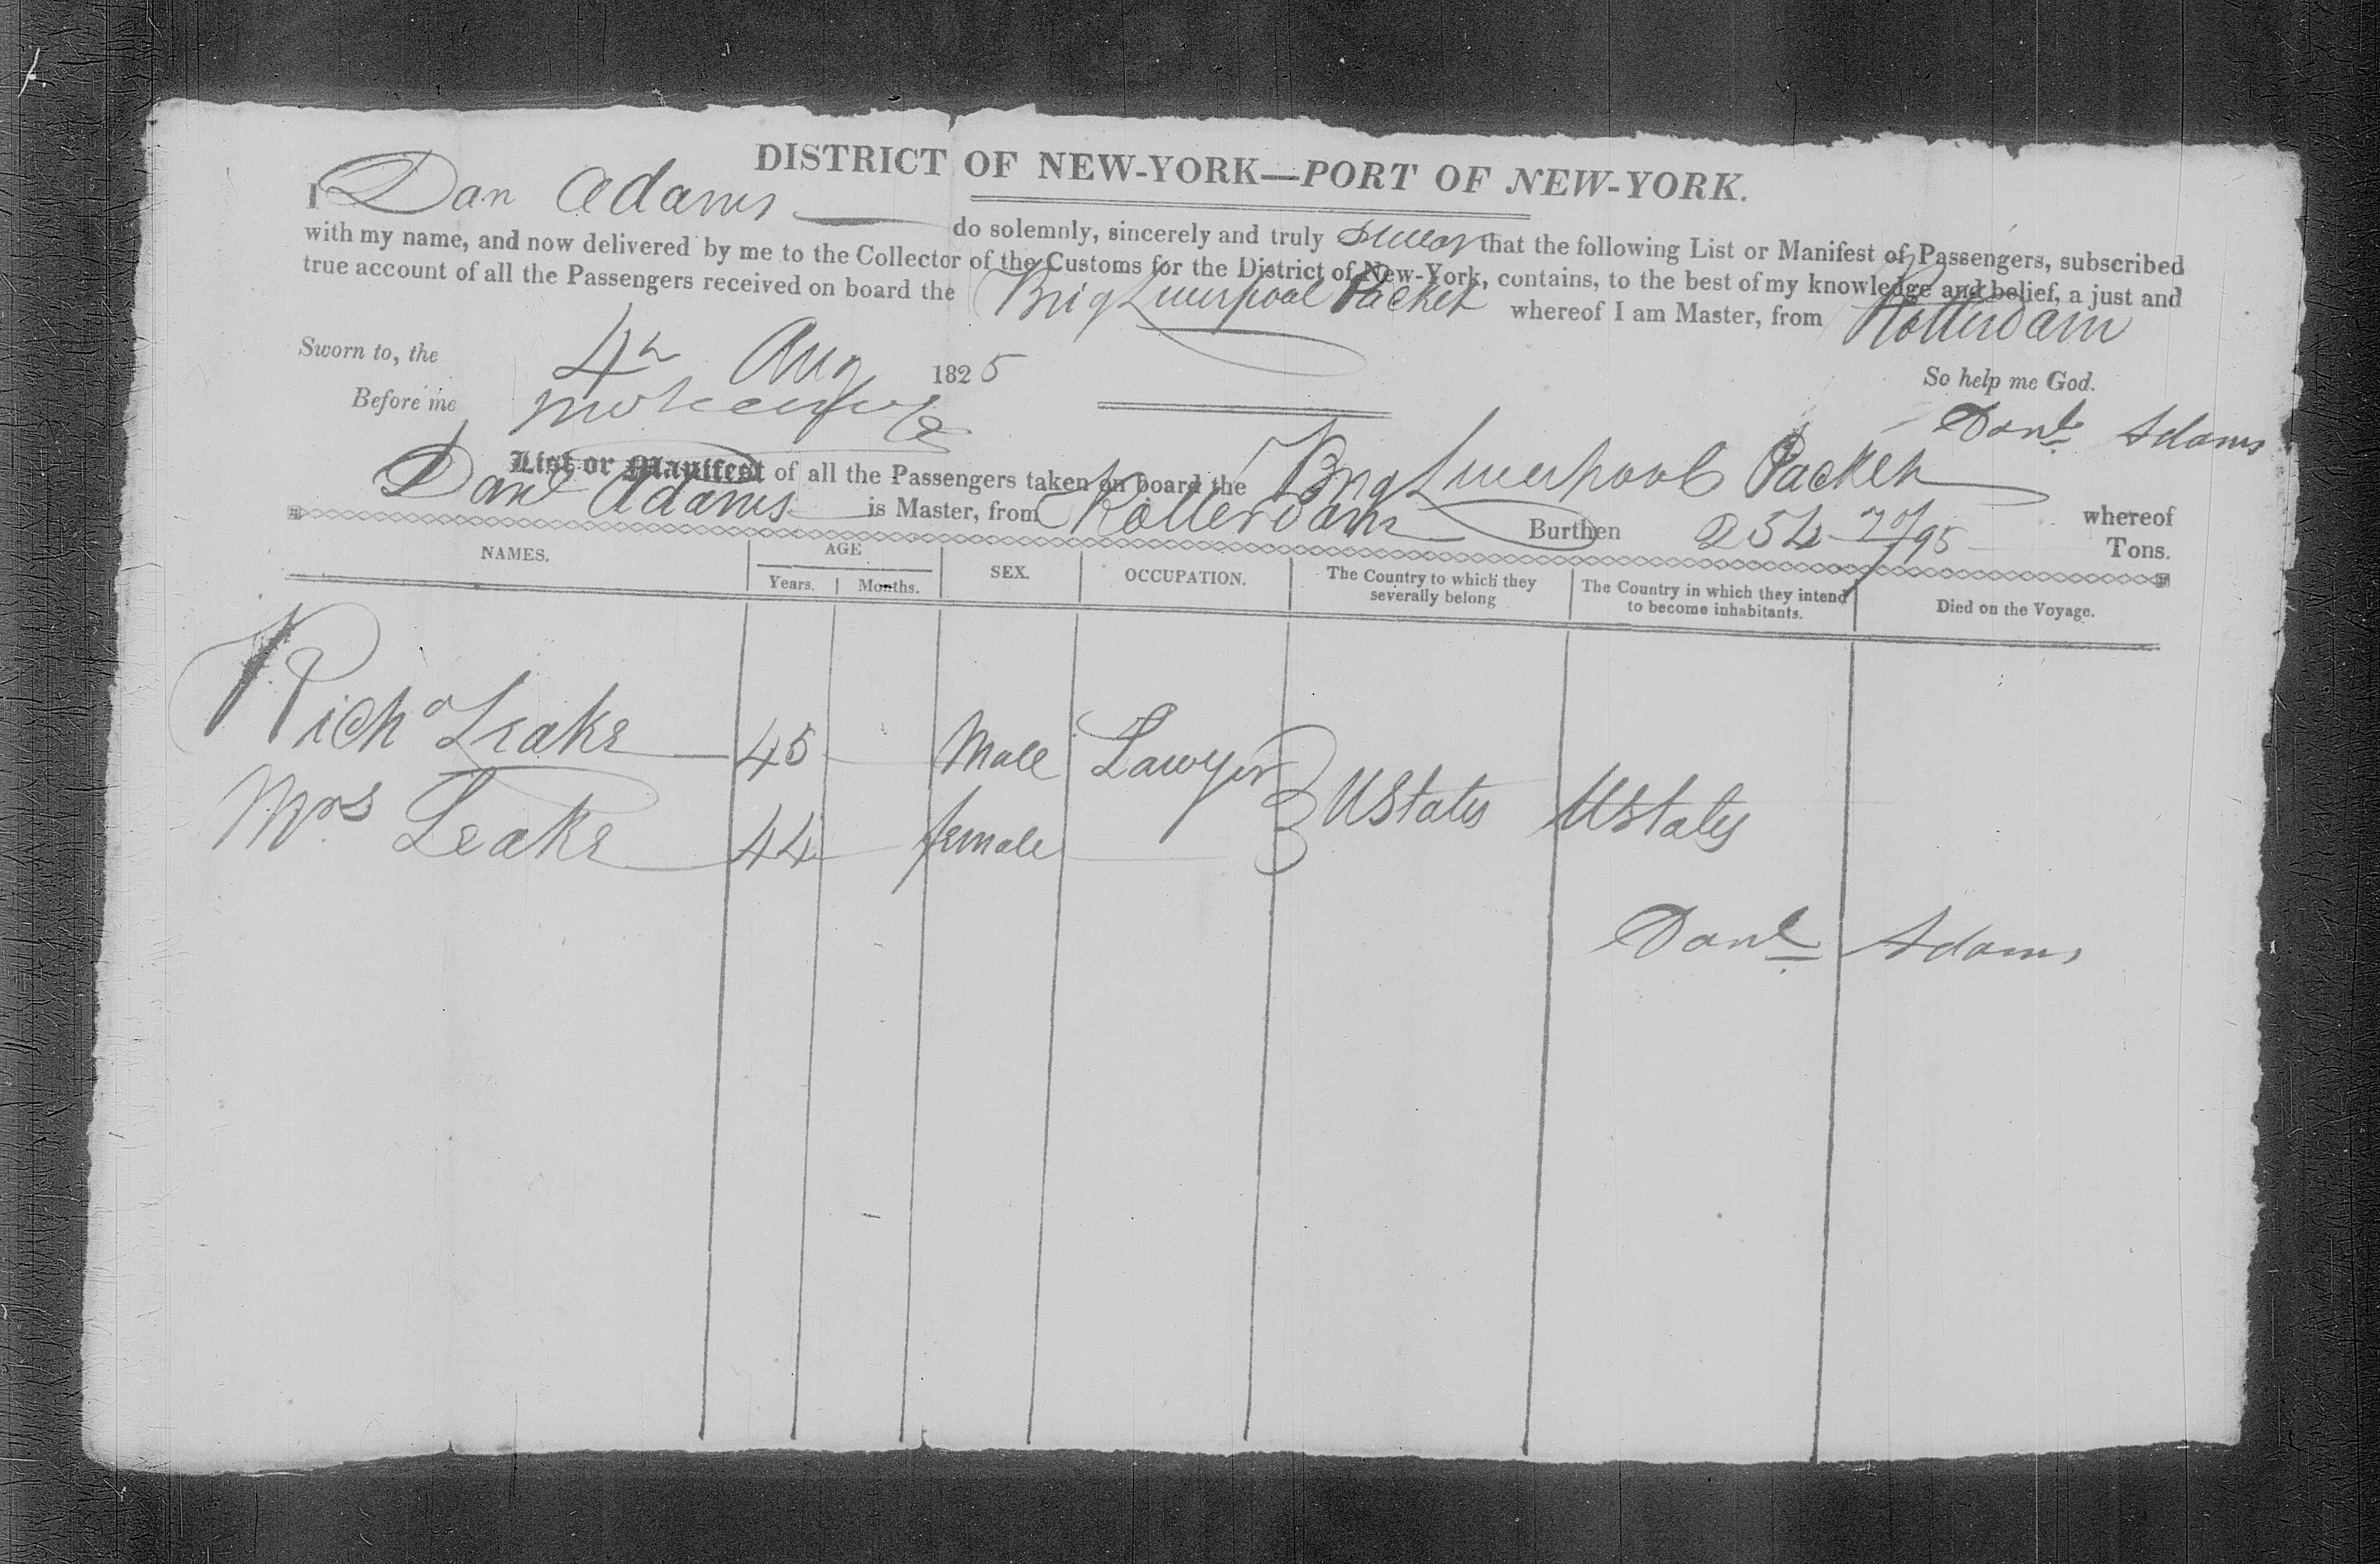 DISTRICT OF NEW-YORK—PORT OF NEW-YORK.
I Dan Adams do solemnly, sincerely and truly swear that the following List or Manifest of Passengers, subscribed
with my name, and now delivered by me to the Collector of the Customs for the District of New-York, contains, to the best of my knowledge and belief, a just and
true account of all the Passengers received on board the Brig Liverpool Packet whereof I am Master, from Rotterdam
Sworn to, the 4th Aug 1825 So help me God.
Before me
Danl Adams
List or Manifest of all the Passengers taken on board the Brig Liverpool Packet whereof
Danl Adams is Master, from Rotterdam Burthen 254 Tons.
NAMES. AGE SEX. OCCUPATION. The Country to which they severally belong The Country in which they intend to become inhabitants. Died on the Voyage.
Years. Months.
Richd Leake 45 Male Lawyer
UStates UStates
Mrs Leake 44 female
Danl Adams